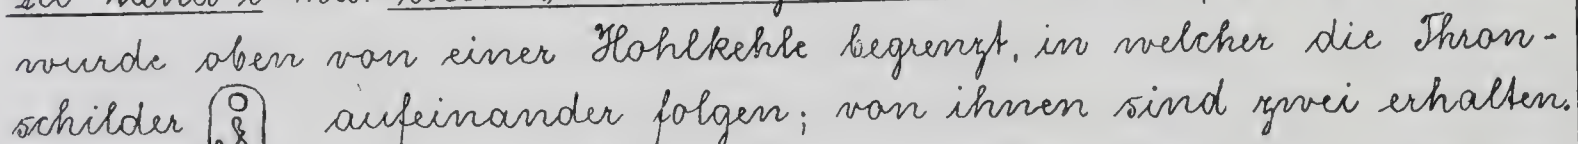 wurde oben von einer Hohlkehle begrenzt, in welcher die Thron-
schilder aufeinander folgen; von ihnen sind zwei erhalten.